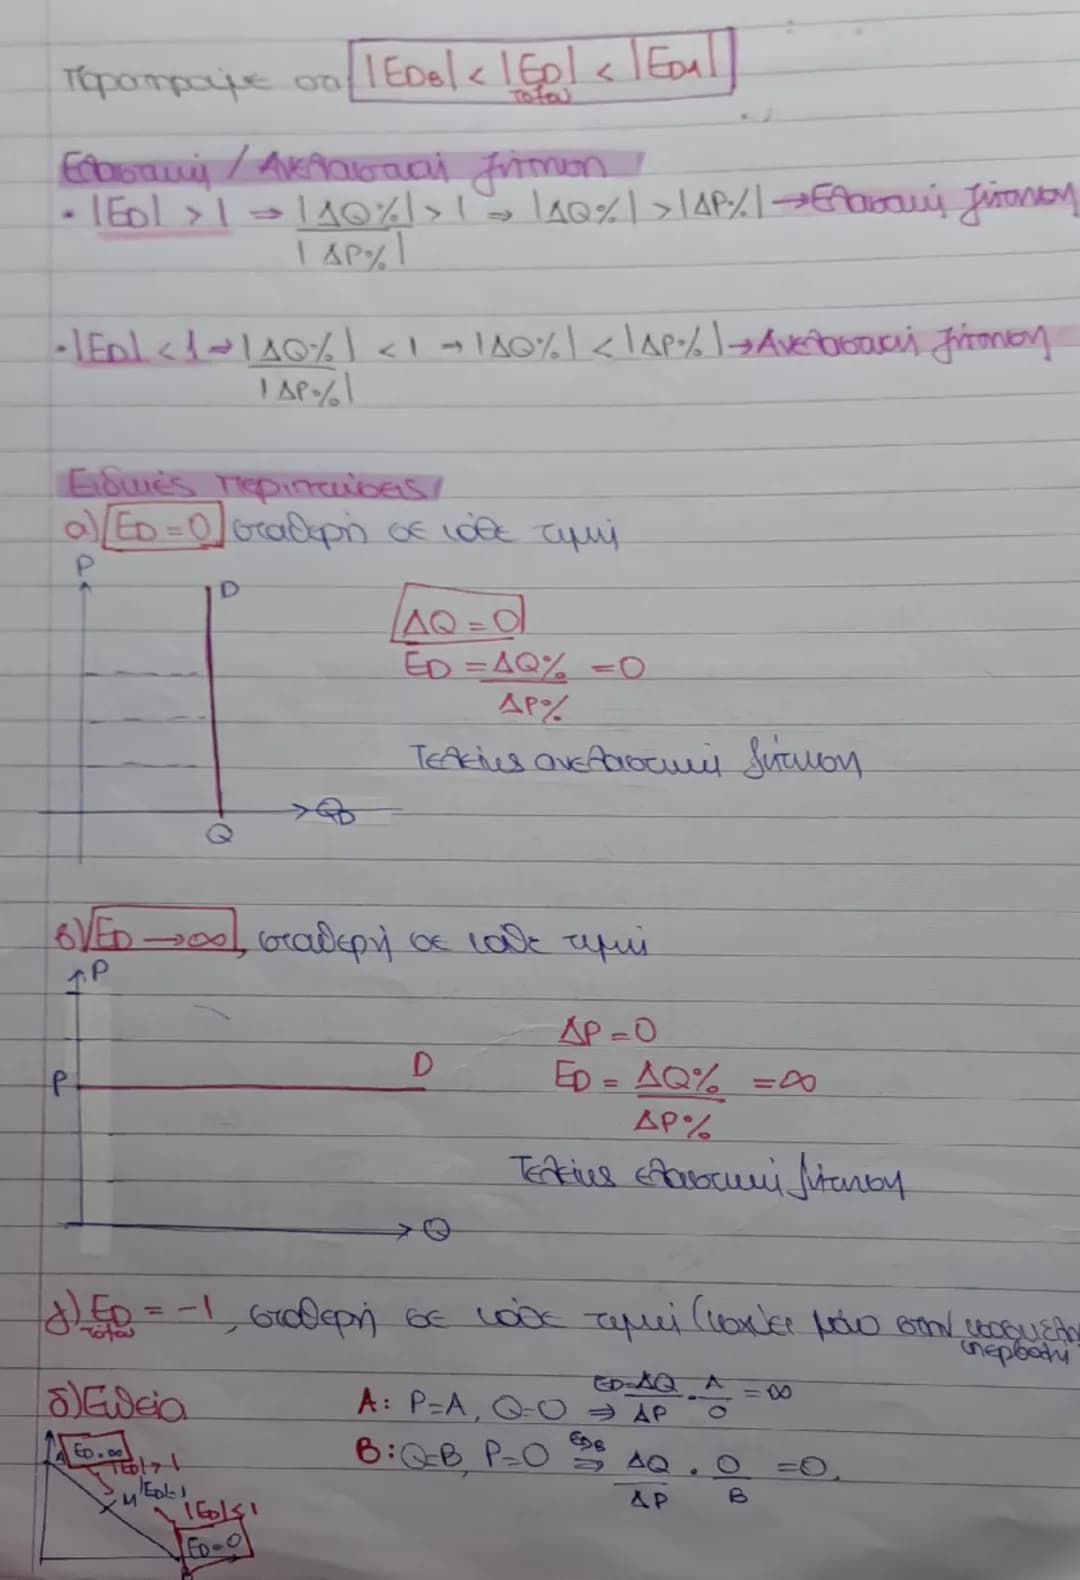 Παρατηρούμε ότι |EDB| < |ED| < |EDA|
τόξου
Ελαστική / Ανελαστική ζήτηση
• |ED| > 1 ⇒ |ΔQ%| > 1 ⇒ |ΔQ%| > |ΔP%| → Ελαστική ζήτηση
|ΔP%|
• |ED| < 1 → |ΔQ%| < 1 → |ΔQ%| < |ΔP%| → Ανελαστική ζήτηση
|ΔP%|
Ειδικές περιπτώσεις
α) ED = 0 σταθερή σε κάθε τιμή
P
D
ΔQ = 0
ED = ΔQ% = 0
ΔP%
Τελείως ανελαστική ζήτηση
QD
Q
β) ED → ∞, σταθερή σε κάθε τιμή
P
ΔP = 0
D
P
ED = ΔQ% = ∞
ΔP%
Τελείως ελαστική ζήτηση
Q
γ) ED = -1, σταθερή σε κάθε τιμή (ισχύει μόνο στην
τόξου
υπερβολή
δ) Ευθεία
A: P=A, Q=0 ⇒ ED=ΔQ/ΔP · A/0 = ∞
B: Q=B, P=0 EDB ⇒ ΔQ/ΔP · 0/B = 0.
A
ED=∞
|ED|>1
M |ED|=1
|ED|<1
ED=0
B